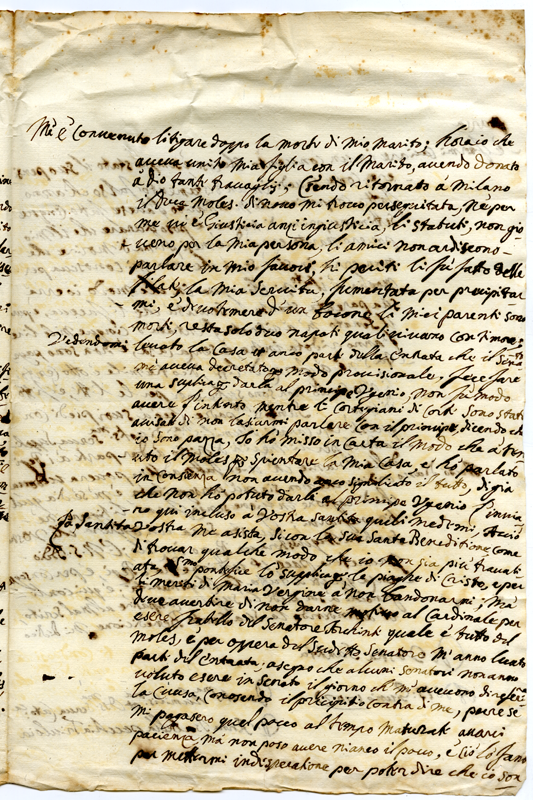 Mi è Convenuto litigare doppo la morte di Mio Marito; Horacio che
aveva unito Mia figlia con il Marito, avendo donato
à Dio tanti travaglij; Esendo ritornato à Milano
il Moles. di novo mi trovo perseguitata, Ne per
me vi è Giusticia anzi ingiusticia, li statuti, non gio
veno per la Mia persona, li amici non ardiscono
parlare in Mio favore, li periti li fù fatto delle
la Mia Servitù, per precipitar
mi, è di un bocone li Miei parenti sono
morti, resta solo duo napoti quali vivano con timore;
Vedendomi levato la Casa et anco parte della Entrata che il Senato
m'aveva decretato modo provisionale, feci fare
una suplica darla al principe Ugenio, non fù modo
avere mentre li Cortigiani di Corte sono stati
avisati di non lasiarmi parlare Con il principe dicendo che
io sono pazza, Io hò misso in carta il modo che à tenu
uto il Moles p spientare la Mia Casa, e hò parlato
in Consienza non avendo anco significato il tutto, di già
che non hò potuto darli al principe Ugenio l'invia
no qui incluso à Vostra Santità quelli medemi,
Sa Santità Vostra Me assista, si con la sua Santa Beneditione come
di trovar qualche modo che io non sia più travali
ata, pontefice lo suplico p le piaghe di Cristo, e per
li meriti di Maria Vergine à non bandonarmi, Mà
deve avertire di non darne motivo al Cardinale per
esere fratello del Senatore Archinti quale è tutto del
moles, e per opera del Sudetto Senatore m'anno levato
parte del entrata, à segno che alcuni Senatori non anno
voluto esere in Senato il giorno che mi avevono di
la Causa, Conosendo il precipitio contra di me, però se
mi pagasero quel poco al tempo maturato avarei
pacienza, mà non poso avere nianco il poco, è Ciò lo fano
per mettermi in disperatione per poter dire che io son